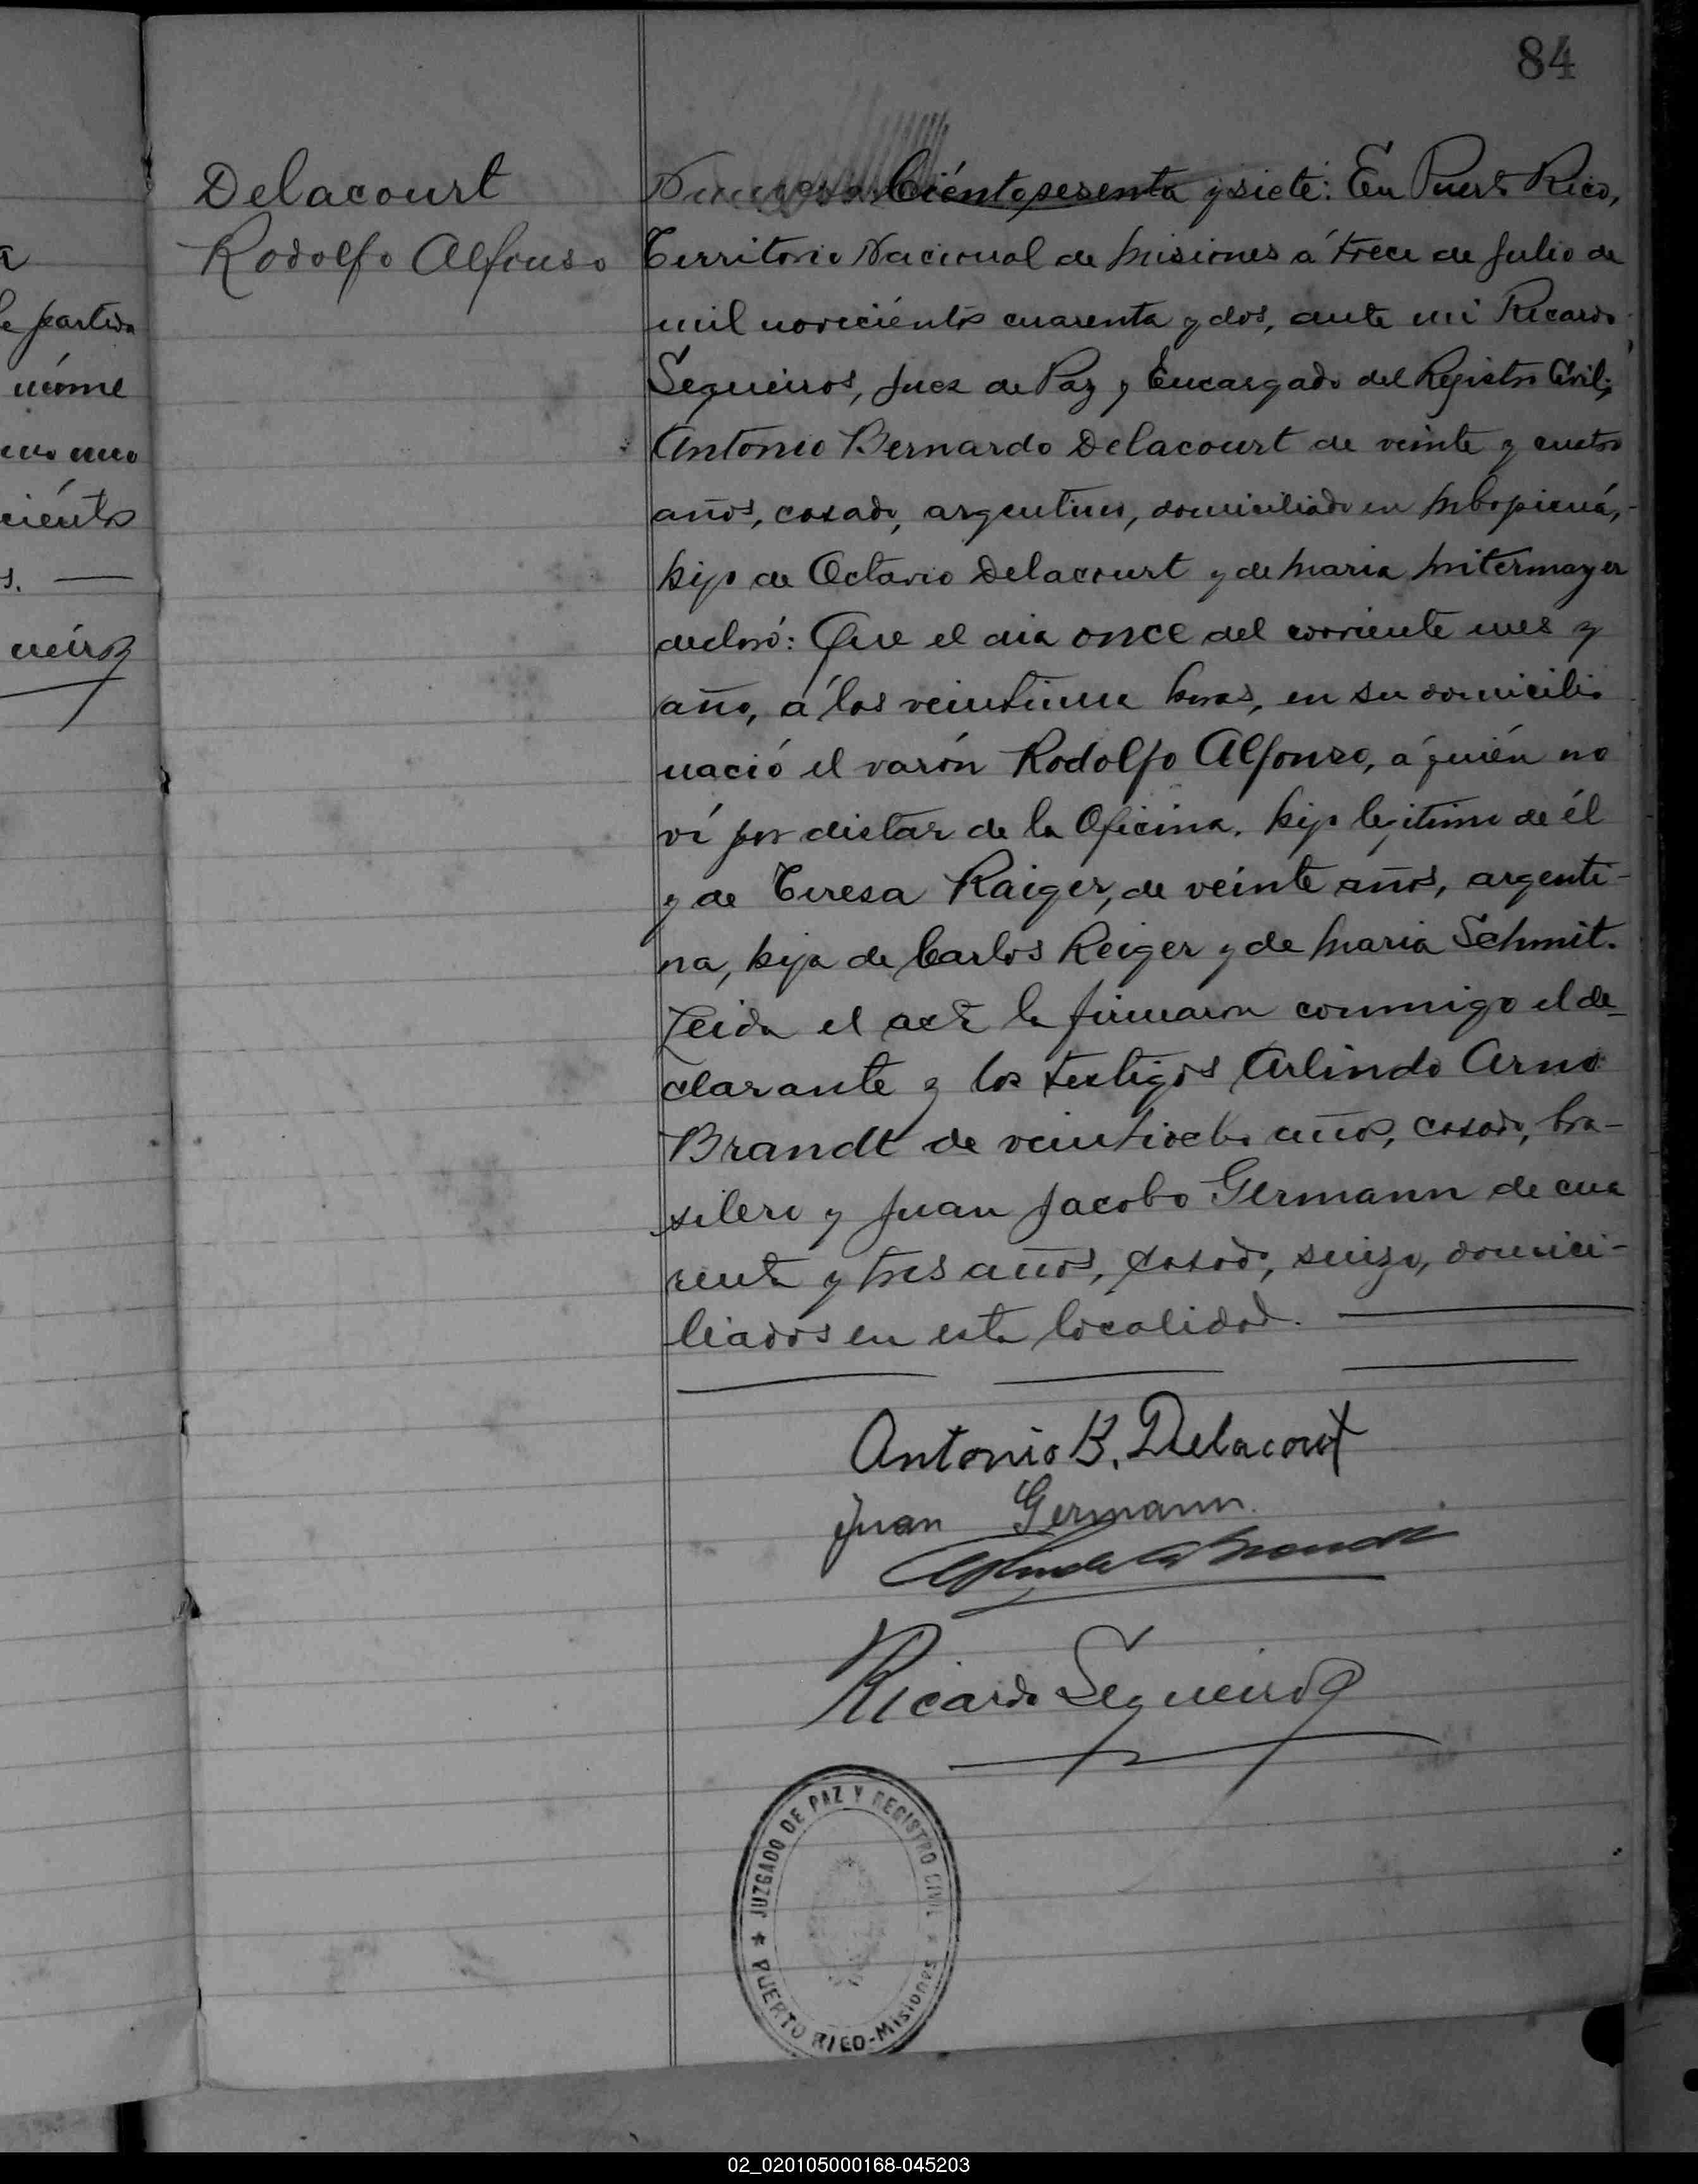 84
Delacourt
Rodolfo Alfonso
Número Ciento sesenta y siete: En Puerto Rico,
Territorio Nacional de Misiones á trece de Julio de
mil novecientos cuarenta y dos, ante mi Ricardo
Sequeiros, Juez de Paz y Encargado del Registro Civil;
Antonio Bernardo Delacourt de veinte y cuatro
años, casado, argentino, domiciliado en Mbopicuá,
hijo de Octavio Delacourt y de Maria Mitermayer
declaró: Que el dia once del corriente mes y
año, á las veintiuna horas, en su domicilio
nació el varón Rodolfo Alfonso, á quién no
ví por distar de la Oficina. hijo legitimo de él
y de Teresa Raiger, de veinte años, argenti-
na, hija de Carlos Reiger y de Maria Schmit.
Leida el acta la firmaron conmigo el de-
clarante y los testigos Arlindo Arno
Brandt de veintiocho años, casado, bra-
silero y Juan Jacobo Germann de cua
renta y tres años, casado, suizo, domici-
liados en esta localidad.
Antonio B. Delacourt
Juan Germann
Arlindo A Brandt
Ricardo Sequeiros
JUZGADO DE PAZ Y REGISTRO CIVIL
PUERTO RICO-Misiones
a
partida
ciento
s.
02_020105000168-045203